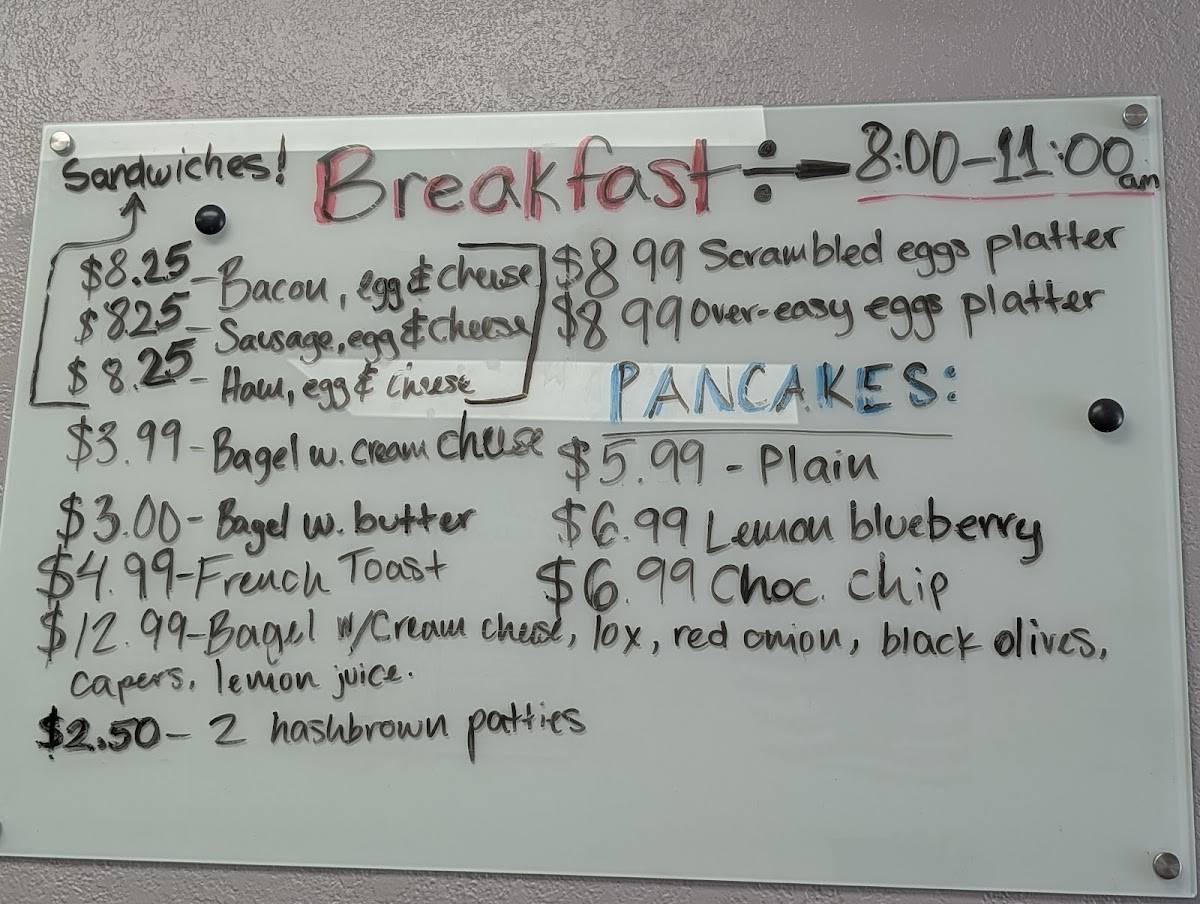 Sandwiches!
Breakfast ÷→ 8:00-11:00 am
$8.25 - Bacon, egg & cheese
$825 - Sausage, egg & cheese
$8.25 - Ham, egg & cheese
$3.99 - Bagel w. cream cheese
$3.00 - Bagel w. butter
$4.99 - French Toast
$8 99 Scrambled eggs platter
$8 99 over-easy eggs platter
PANCAKES:
$5.99 - Plain
$6.99 Lemon blueberry
$6.99 Choc. chip
$12.99 - Bagel w/Cream cheese, lox, red onion, black olives,
capers, lemon juice.
$2.50 - 2 hashbrown patties